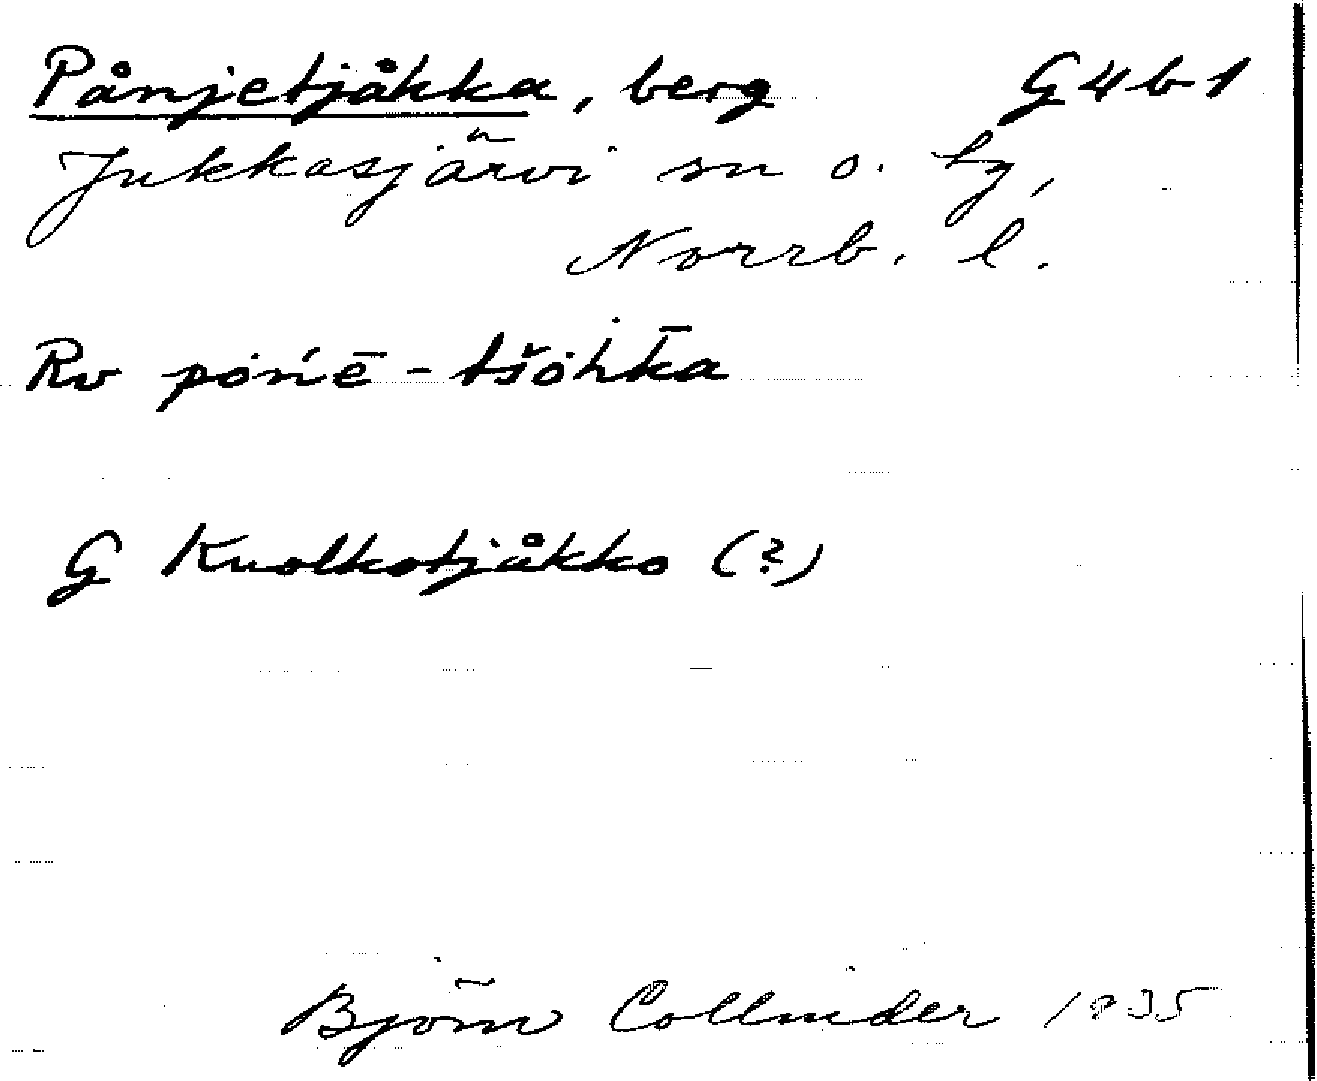 Pånjetjåkka, berg G4b1
Jukkasjärvi sn o. tg,
Norrb. l.
Rv pȯńē - tšȯh̄ka
G Kuolkotjåkko (?)
Björn Collinder 1935